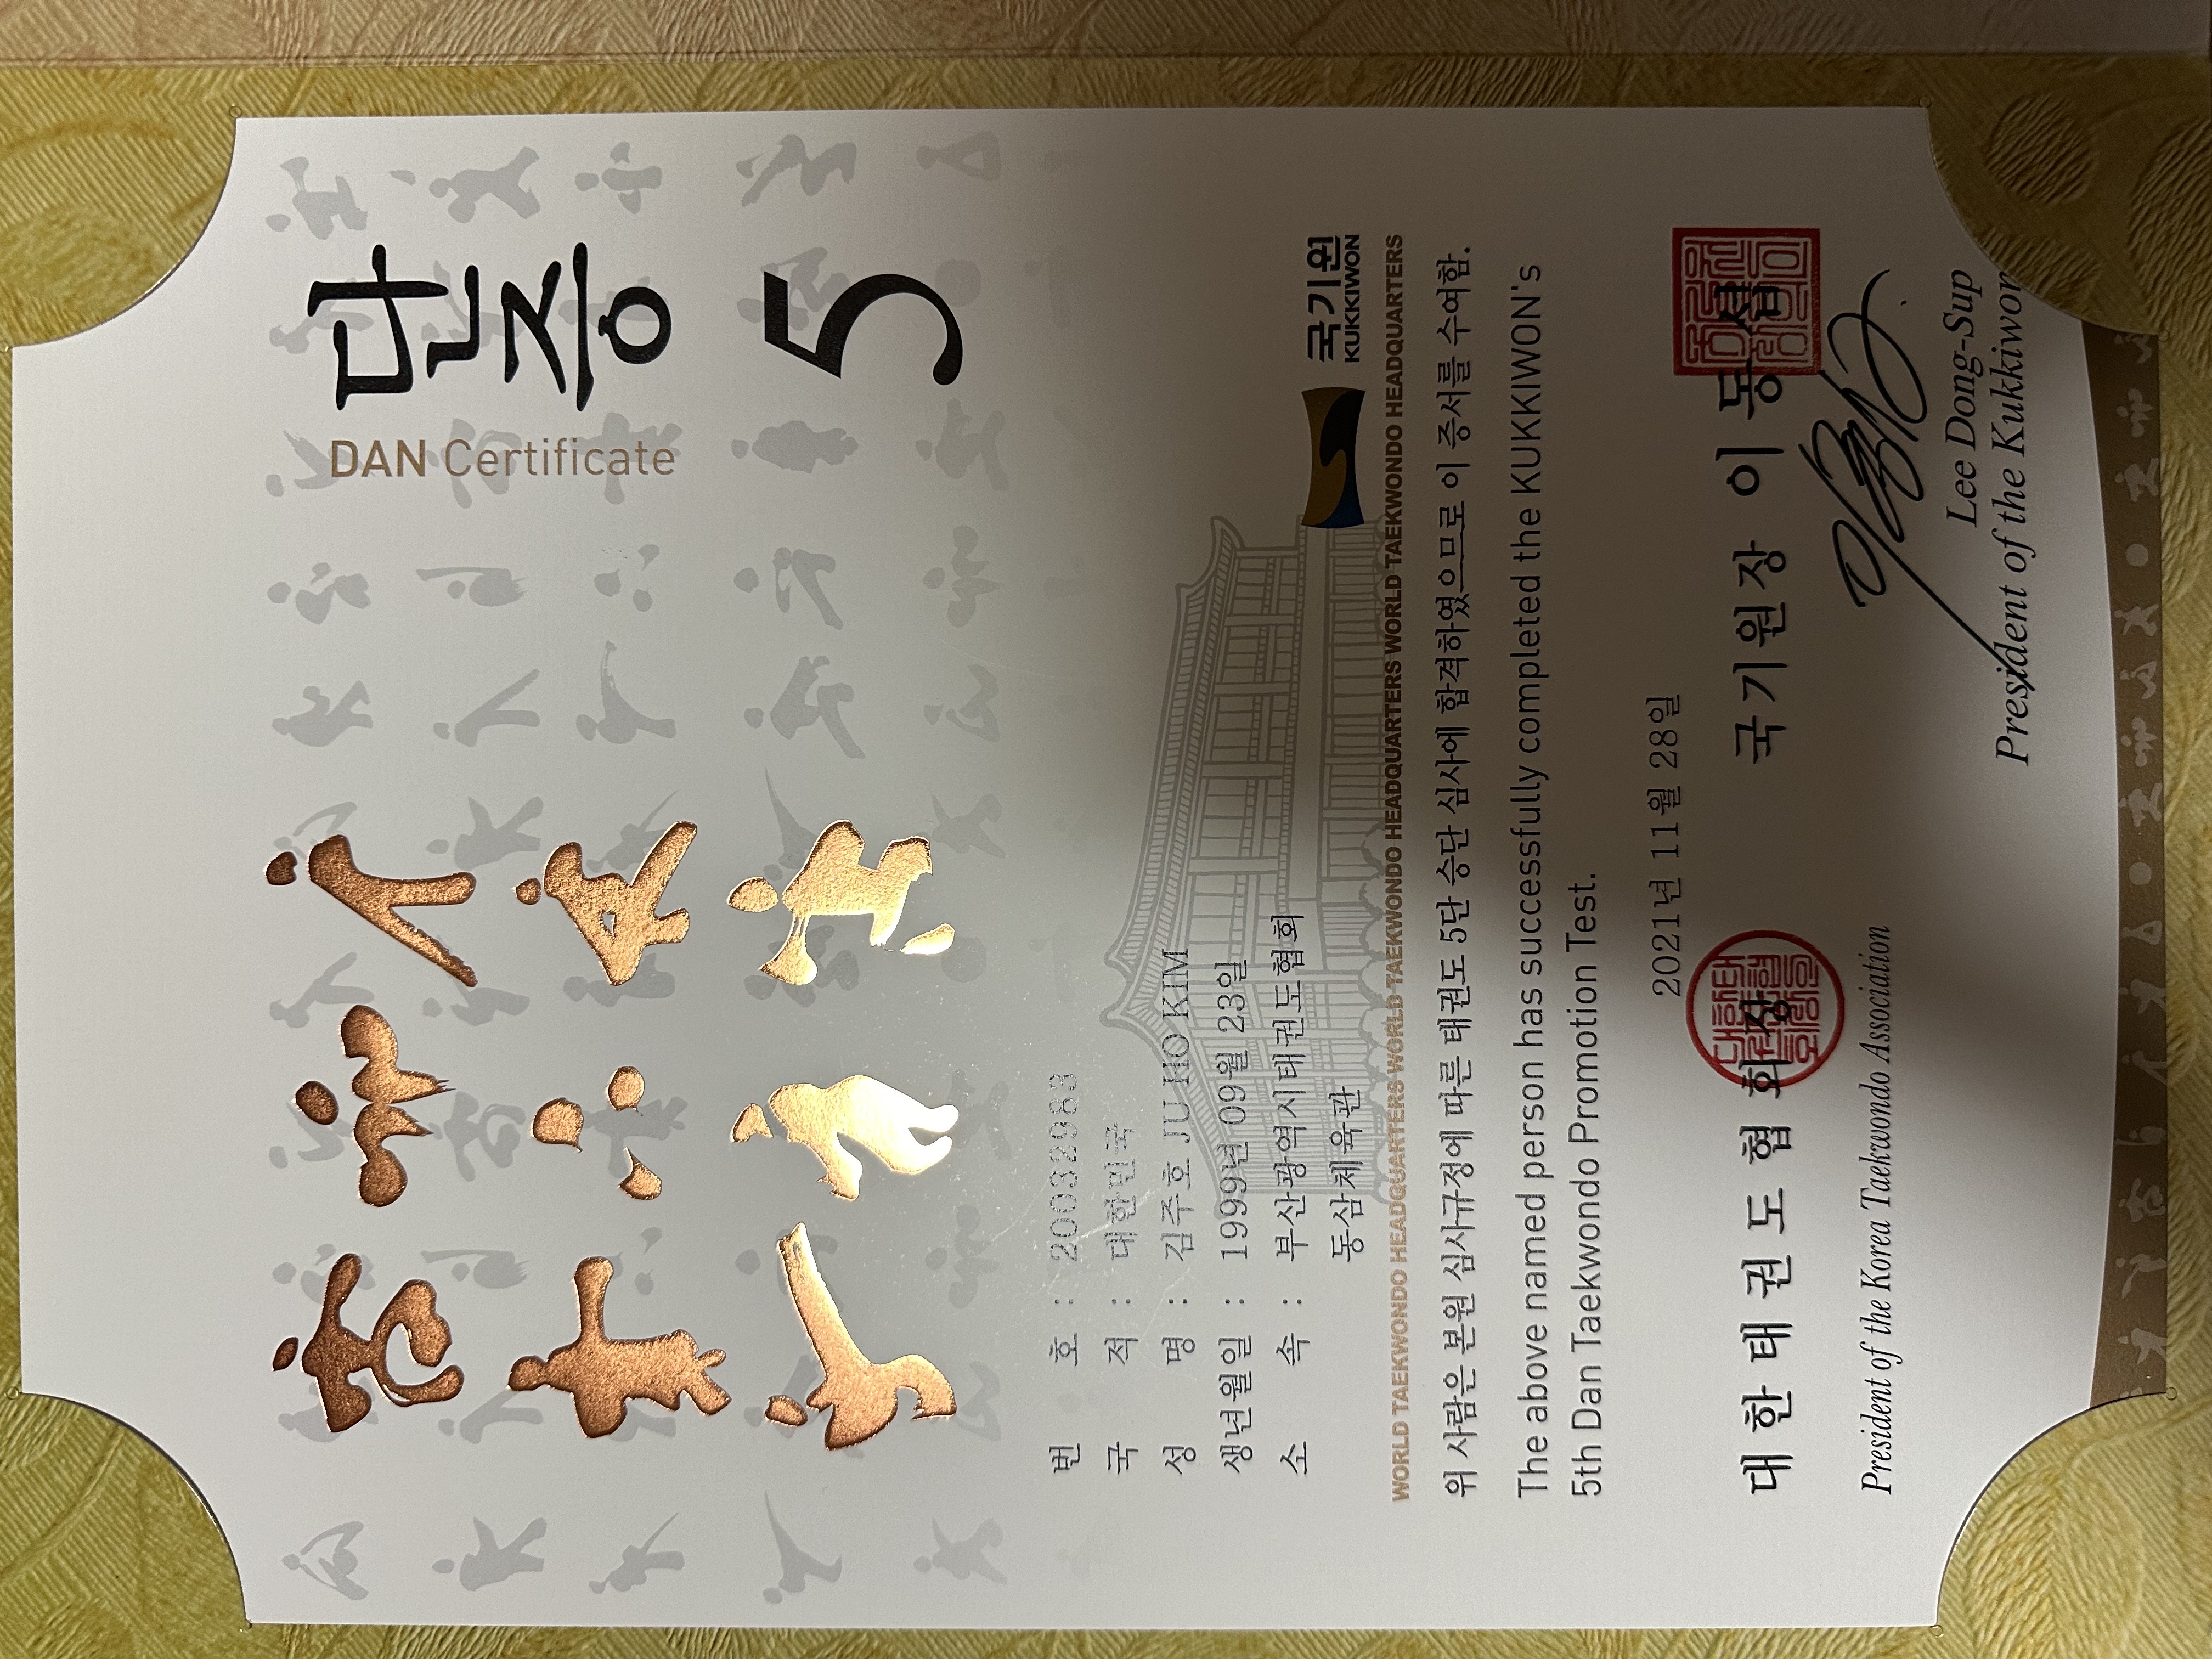 단증
DAN Certificate
5
번 호 : 20032963
국 적 : 대한민국
성 명 : 김주호 JU HO KIM
생년월일 : 1999년 09월 23일
소 속 : 부산광역시태권도협회
동삼체육관
국기원
KUKKIWON
WORLD TAEKWONDO HEADQUARTERS WORLD TAEKWONDO HEADQUARTERS WORLD TAEKWONDO HEADQUARTERS WORLD TAEKWONDO HEADQUARTERS
위 사람은 본원 심사규정에 따른 태권도 5단 승단 심사에 합격하였으므로 이 증서를 수여함.
The above named person has successfully completed the KUKKIWON's
5th Dan Taekwondo Promotion Test.
2021년 11월 28일
대한태권도협회장
President of the Korea Taekwondo Association
국기원장 이동섭
Lee Dong-Sup
President of the Kukkiwon